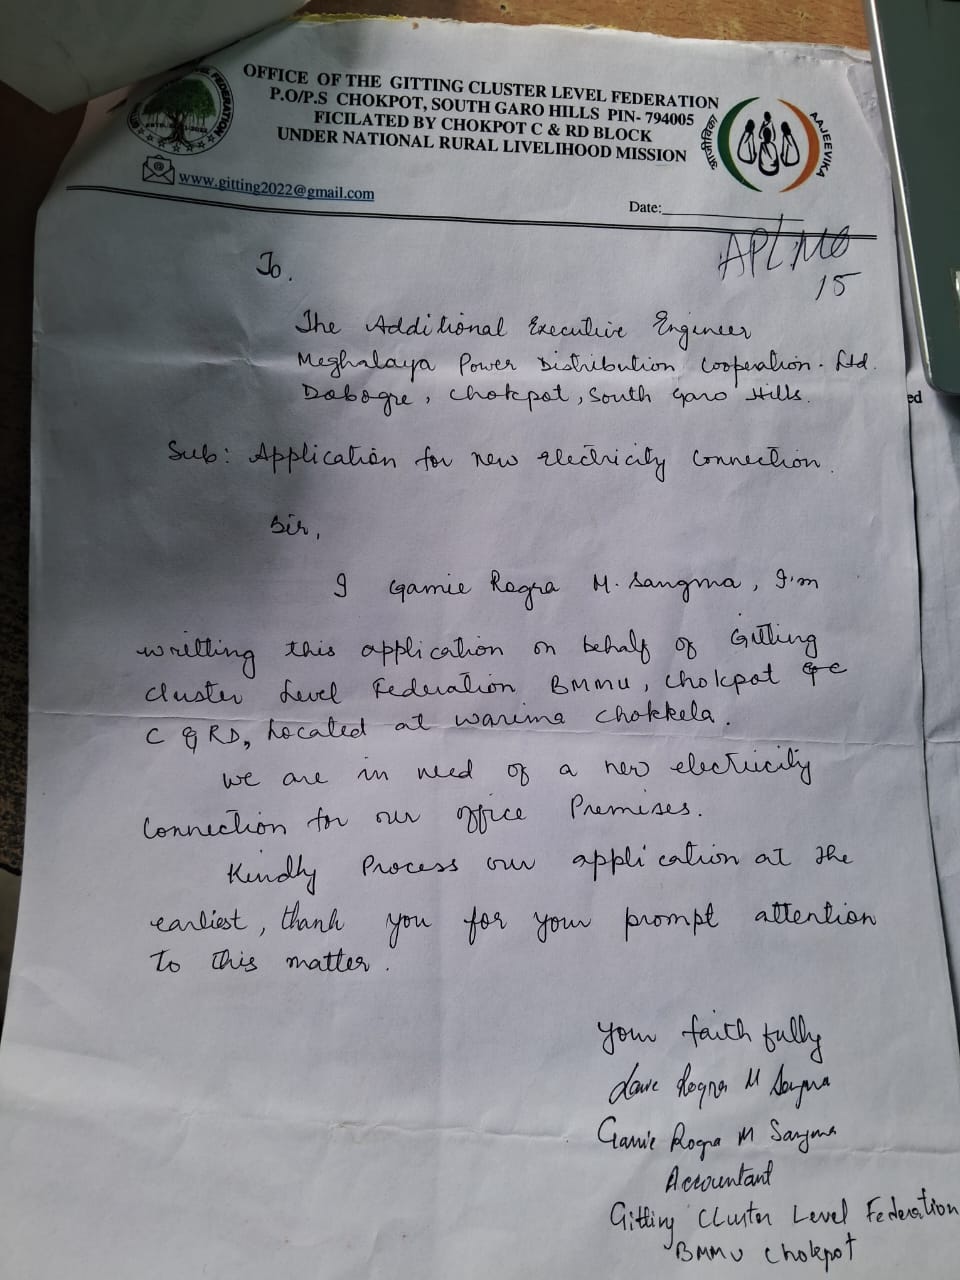 OFFICE OF THE GITTING CLUSTER LEVEL FEDERATION
P.O/P.S CHOKPOT, SOUTH GARO HILLS PIN- 794005
FICILATED BY CHOKPOT C & RD BLOCK
UNDER NATIONAL RURAL LIVELIHOOD MISSION
आजीविका
AAJEEVIKA
www.gitting2022@gmail.com
Date:
APL/MO
15
To.
The Additional Executive Engineer
Meghalaya Power Distribution Cooperation. Ltd.
Dabogre, Chokpot, South Garo Hills.
Sub: Application for new electricity Connection.
Sir,
I Gamie Rogra M. Sangma, I'm
writting this application on behalf of Gitting
Cluster Level Federation BMMU, Chokpot
C & RD, Located at Warima Chokkela.
We are in need of a new electricity
Connection for our office Premises.
Kindly Process our application at the
earliest, thank you for your prompt attention
to this matter.
Your faithfully
Rogra M Sangma
Gamie Rogra M Sangma
Accountant
Gitting Cluster Level Federation
BMMU Chokpot
ed